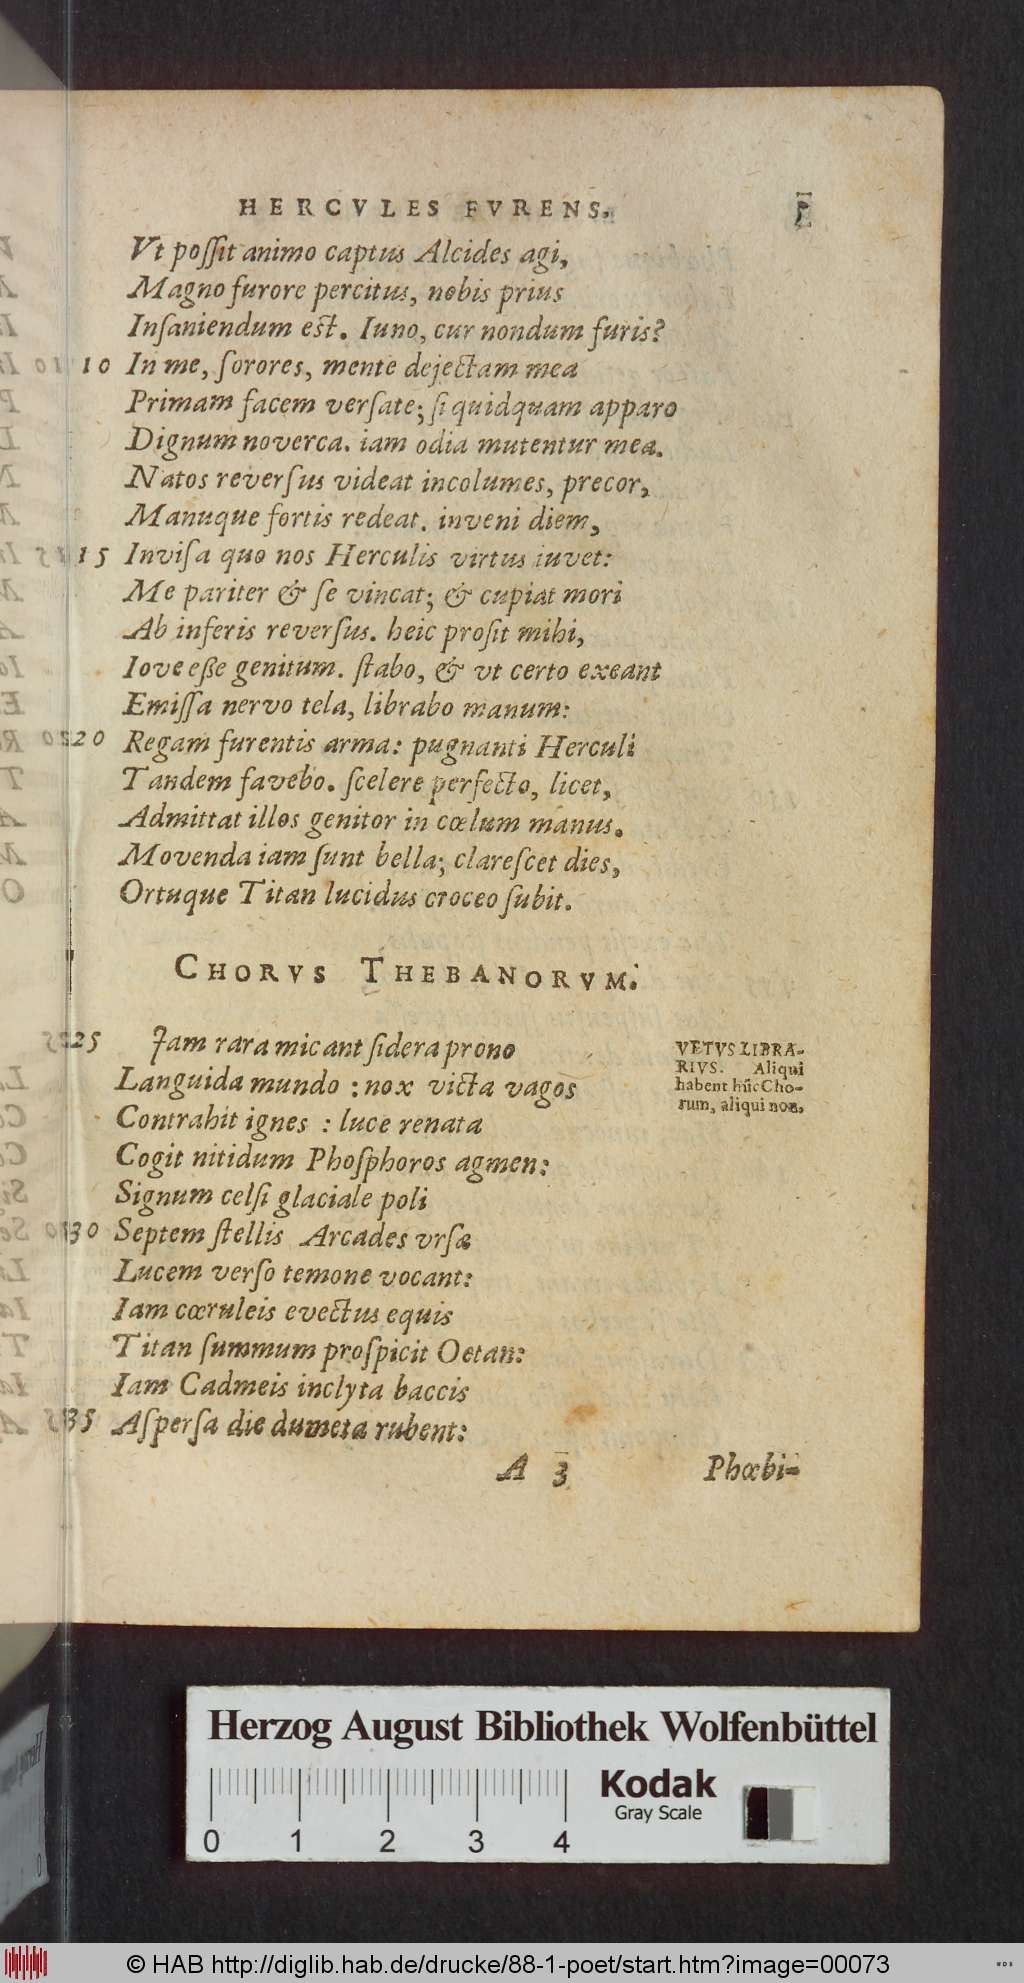 HERCVLES FVRENS. 5
Vt poſſit animo captus Alcides agi,
Magno furore percitus, nobis prius
Inſaniendum est. Iuno, cur nondum furis?
110 In me, ſorores, mente dejectam mea
Primam facem verſate; ſi quidquam apparo
Dignum noverca. iam odia mutentur mea.
Natos reverſus videat incolumes, precor,
Manuque fortis redeat. inveni diem,
115 Inviſa quo nos Herculis virtus iuvet:
Me pariter & ſe vincat; & cupiat mori
Ab inferis reverſus. heic proſit mihi,
Iove eße genitum. ſtabo, & vt certo exeant
Emiſſa nervo tela, librabo manum:
120 Regam furentis arma: pugnanti Herculi
Tandem favebo. ſcelere perfecto, licet,
Admittat illos genitor in cœlum manus.
Movenda iam ſunt bella; clareſcet dies,
Ortuque Titan lucidus croceo ſubit.
CHORVS THEBANORVM.
125 Jam rara micant ſidera prono
Languida mundo : nox victa vagos
Contrahit ignes : luce renata
Cogit nitidum Phoſphoros agmen:
Signum celſi glaciale poli
130 Septem ſtellis Arcades vrſæ
Lucem verſo temone vocant:
Iam cœruleis evectus equis
Titan ſummum proſpicit Oetan:
Iam Cadmeis inclyta baccis
135 Aſperſa die dumeta rubent:
VETVS LIBRA-
RIVS. Aliqui
habent hūc Cho-
rum, aliqui non,
A 3 Phœbi-
Herzog August Bibliothek Wolfenbüttel
Kodak
Gray Scale
0 1 2 3 4
© HAB http://diglib.hab.de/drucke/88-1-poet/start.htm?image=00073